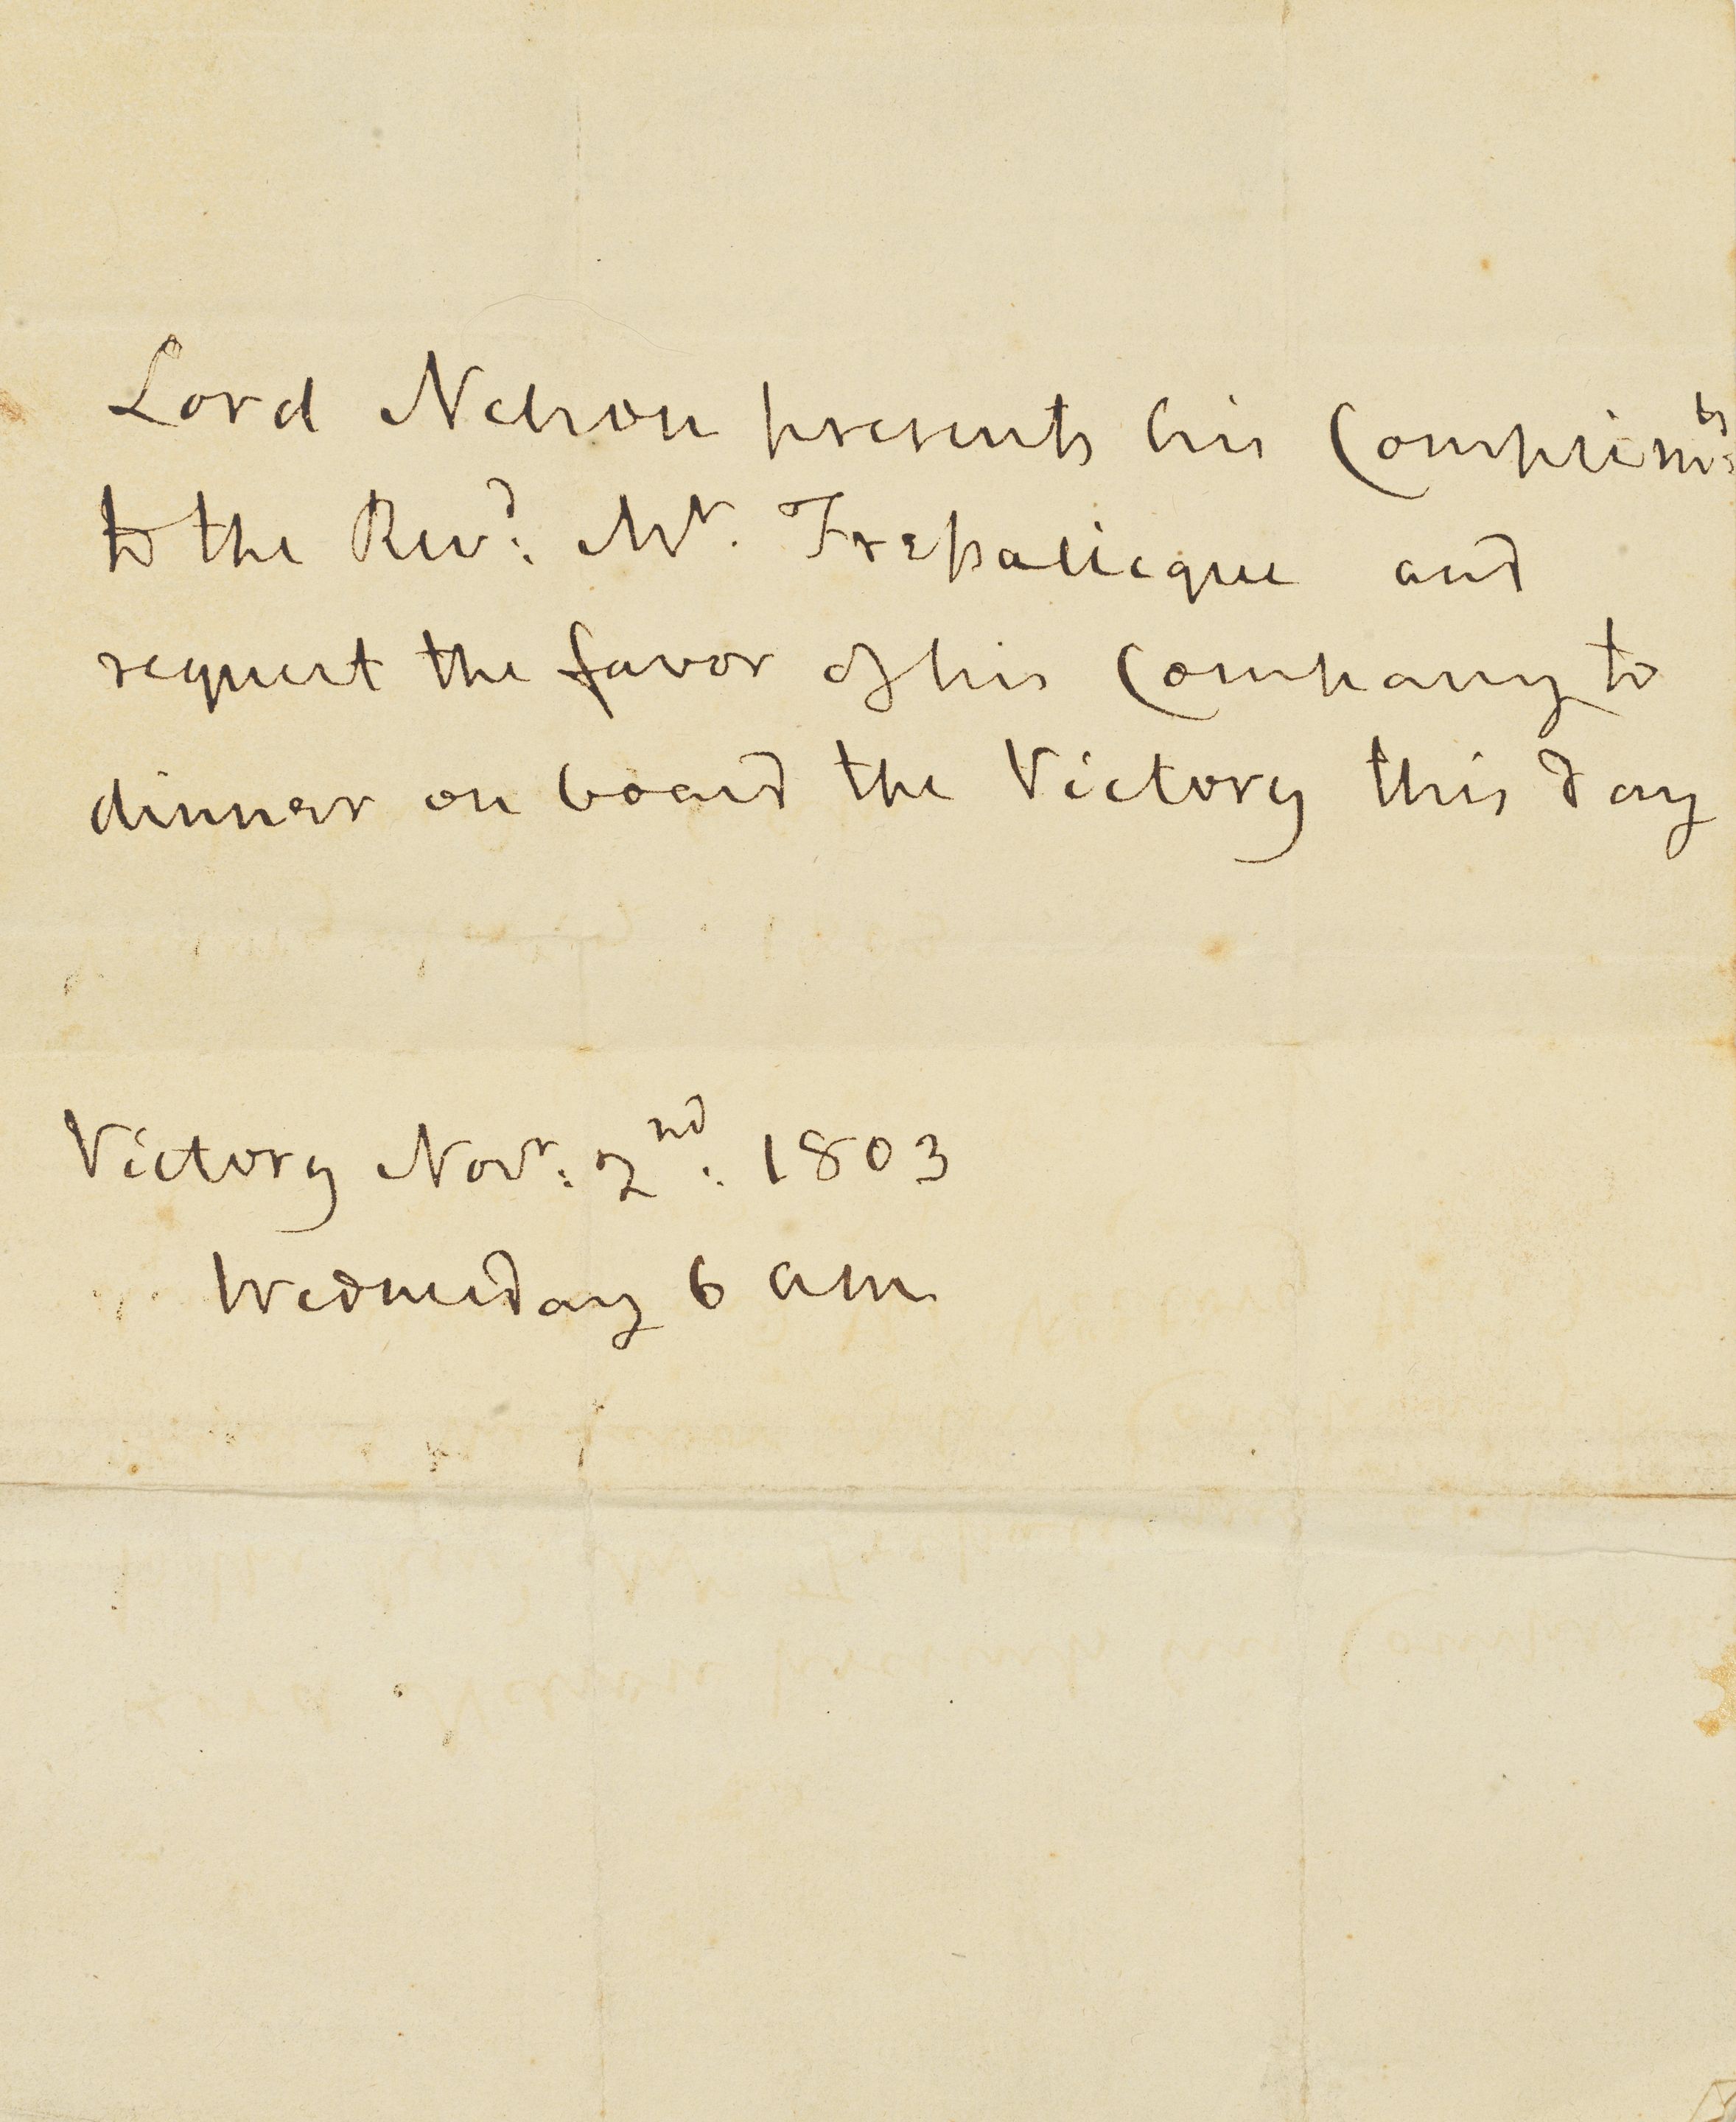 Lord Nelson presents his Complim:ts
to the Revd: Mr. and
request the favor of his Company to
dinner on board the Victory this day
Victory Novr: 2nd: 1803
Wednesday 6 am